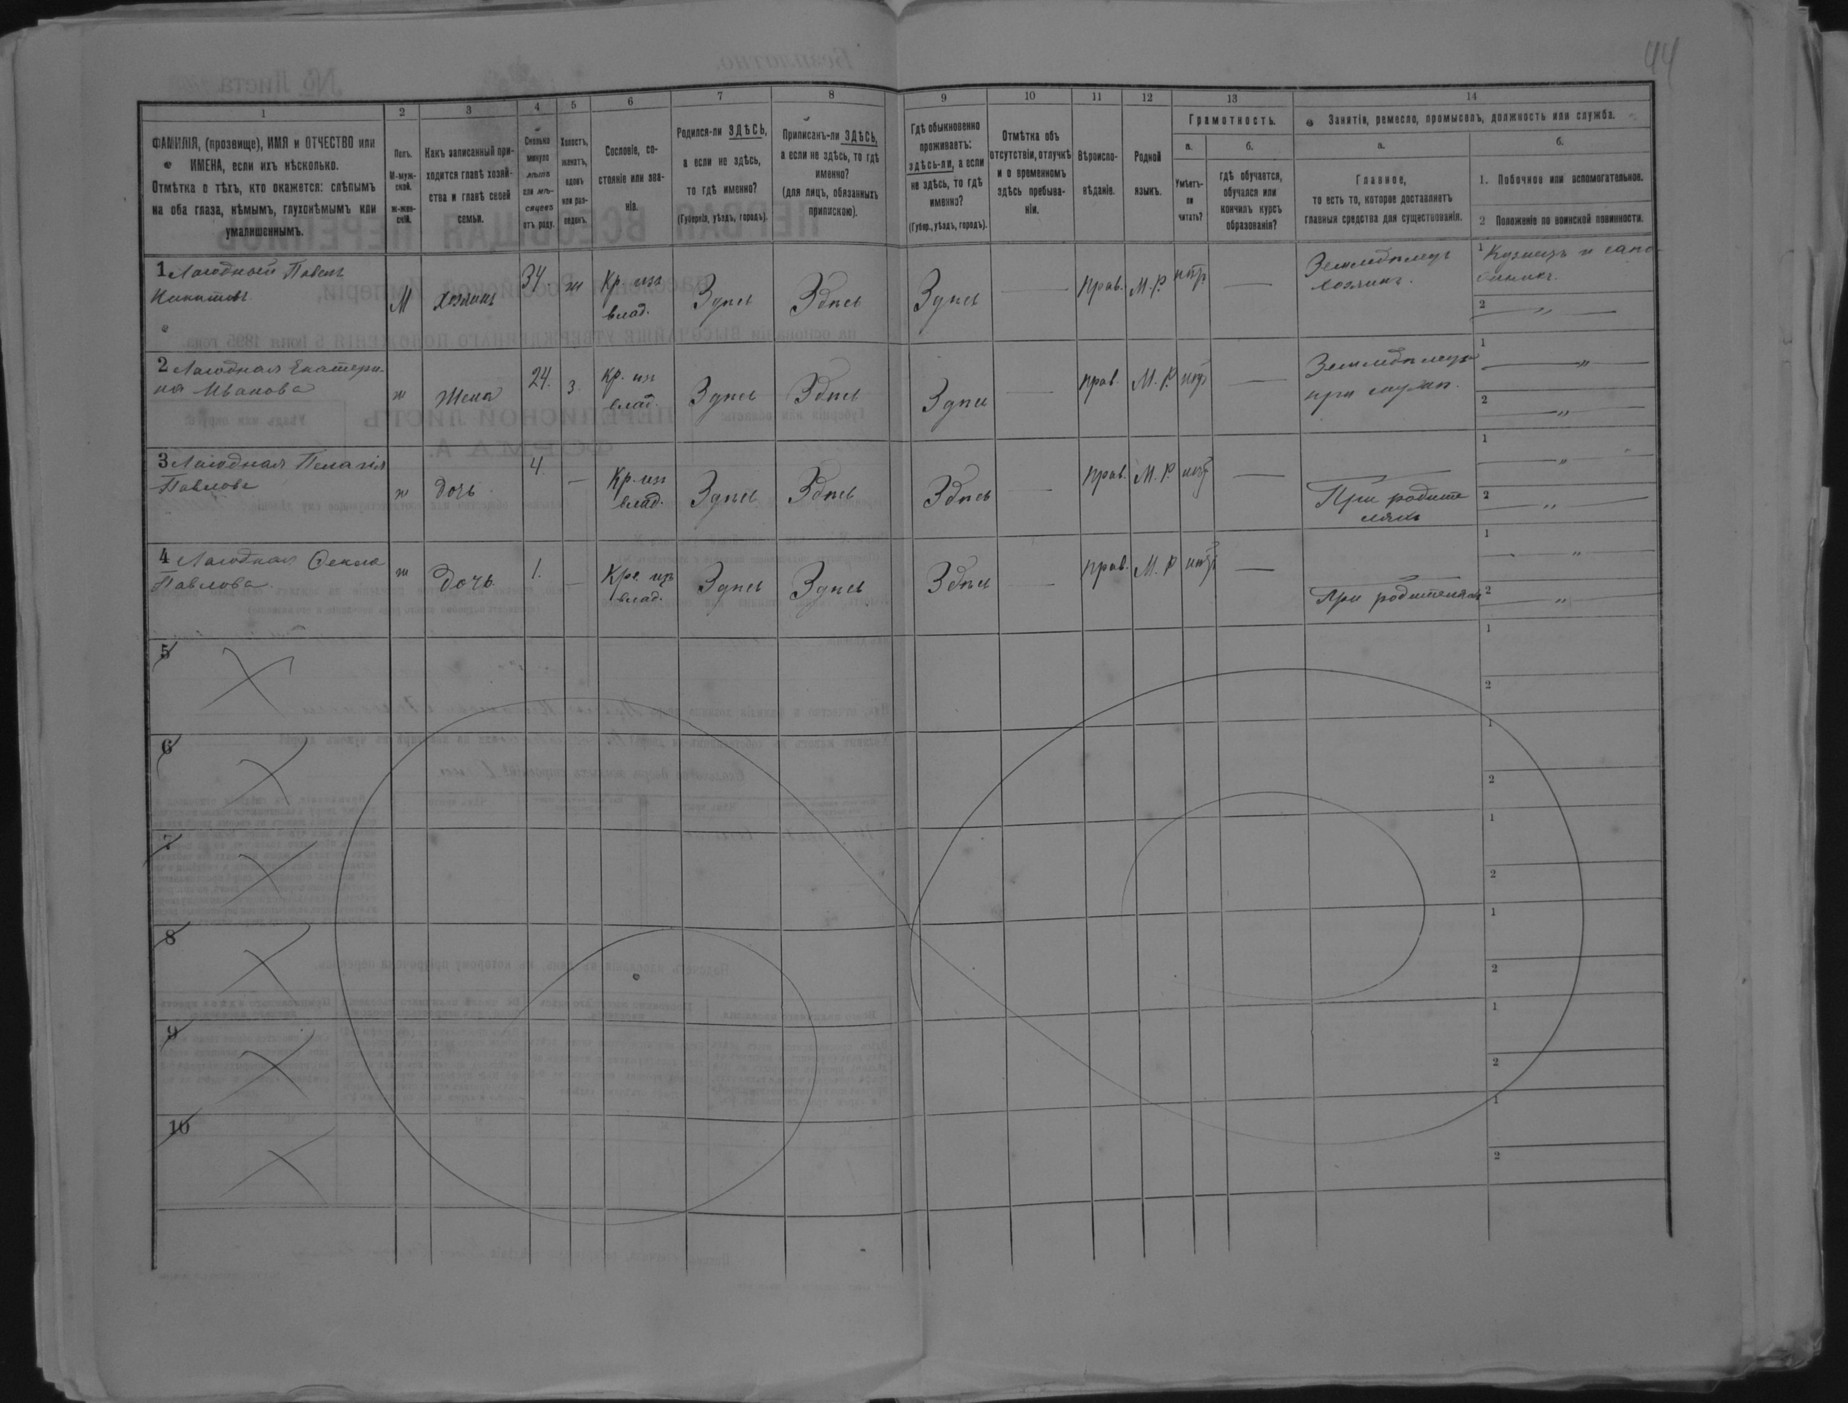 44
1
ФАМИЛІЯ, (прозвище), ИМЯ и ОТЧЕСТВО или
ИМЕНА, если ихъ нѣсколько.
Отмѣтка о тѣхъ, кто окажется: слѣпымъ
на оба глаза, нѣмымъ, глухонѣмымъ или
умалишеннымъ.
2
Полъ.
М-муж-
ской.
ж-жен-
скій.
3
Какъ записанный при-
ходится главѣ хозяй-
ства и главѣ своей
семьи.
4
Сколько
минуло
лѣтъ
или мѣ-
сяцевъ
отъ роду.
5
Холостъ,
женатъ,
вдовъ
или раз-
веденъ.
6
Сословіе, со-
стояніе или зва-
ніе.
7
Родился-ли ЗДѢСЬ,
а если не здѣсь,
то гдѣ именно?
(Губернія, уѣздъ, городъ).
8
Приписанъ-ли ЗДѢСЬ,
а если не здѣсь, то гдѣ
именно?
(для лицъ, обязанныхъ
припискою).
9
Гдѣ обыкновенно
проживаетъ:
здѣсь-ли, а если
не здѣсь, то гдѣ
именно?
(Губер., уѣздъ, городъ).
10
Отмѣтка объ
отсутствіи, отлучкѣ
и о временномъ
здѣсь пребыва-
ніи.
11
Вѣроиспо-
вѣданіе.
12
Родной
языкъ.
13
Грамотность.
а.
Умѣетъ-
ли
читать?
б.
гдѣ обучается,
обучался или
кончилъ курсъ
образованія?
14
Занятіе, ремесло, промыселъ, должность или служба.
а.
Главное,
то есть то, которое доставляетъ
главныя средства для существованія.
б.
1. Побочное или вспомогательное.
2 Положеніе по воинской повинности.
1 Лагодный Павелъ
Никитовъ
М
хозяинъ
34.
ж
Кр. изъ
влад.
Здѣсь
Здѣсь
Здѣсь
прав.
М.Р
нѣтъ
Земледѣлецъ
хозяинъ.
1 Кузнецъ и сапо-
жникъ.
2 "
2 Лагодная Екатери-
на Иванова
ж
Жена
24.
з.
Кр. изъ
влад.
Здѣсь
Здѣсь
Здѣсь
прав.
М. Р
нѣтъ
Земледѣлецъ
при мужѣ.
1 "
2 "
3 Лагодная Пелагія
Павлова
ж
дочь
4.
Кр. изъ
влад.
Здѣсь
Здѣсь
Здѣсь
прав.
М. Р.
нѣтъ
При родите
ляхъ
1 "
2 "
4 Лагодная Ѳекла
Павлова.
ж
Дочь
1.
Кре. изъ
влад.
Здѣсь
Здѣсь
Здѣсь
прав.
М. Р
нѣтъ
При родителяхъ
1 "
2 "
5
1
2
6
1
2
7
1
2
8
1
2
9
1
2
10
1
2